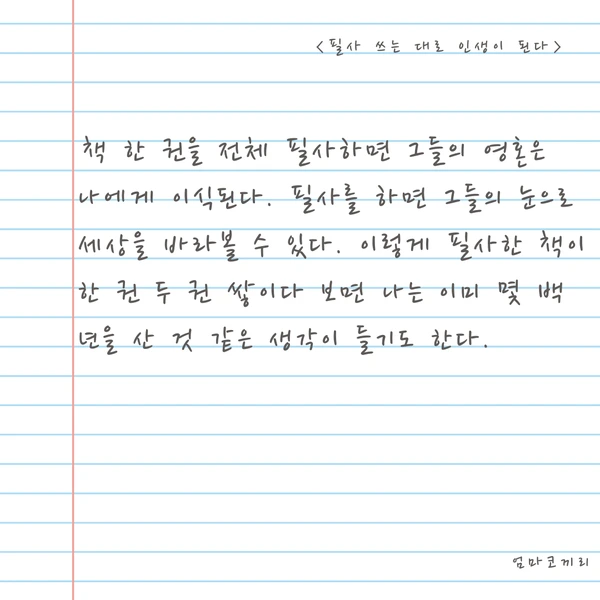 <필사 쓰는 대로 인생이 된다>
책 한 권을 전체 필사하면 그들의 영혼은
나에게 이식된다. 필사를 하면 그들의 눈으로
세상을 바라볼 수 있다. 이렇게 필사한 책이
한 권 두 권 쌓이다 보면 나는 이미 몇 백
년을 산 것 같은 생각이 들기도 한다.
엄마코끼리